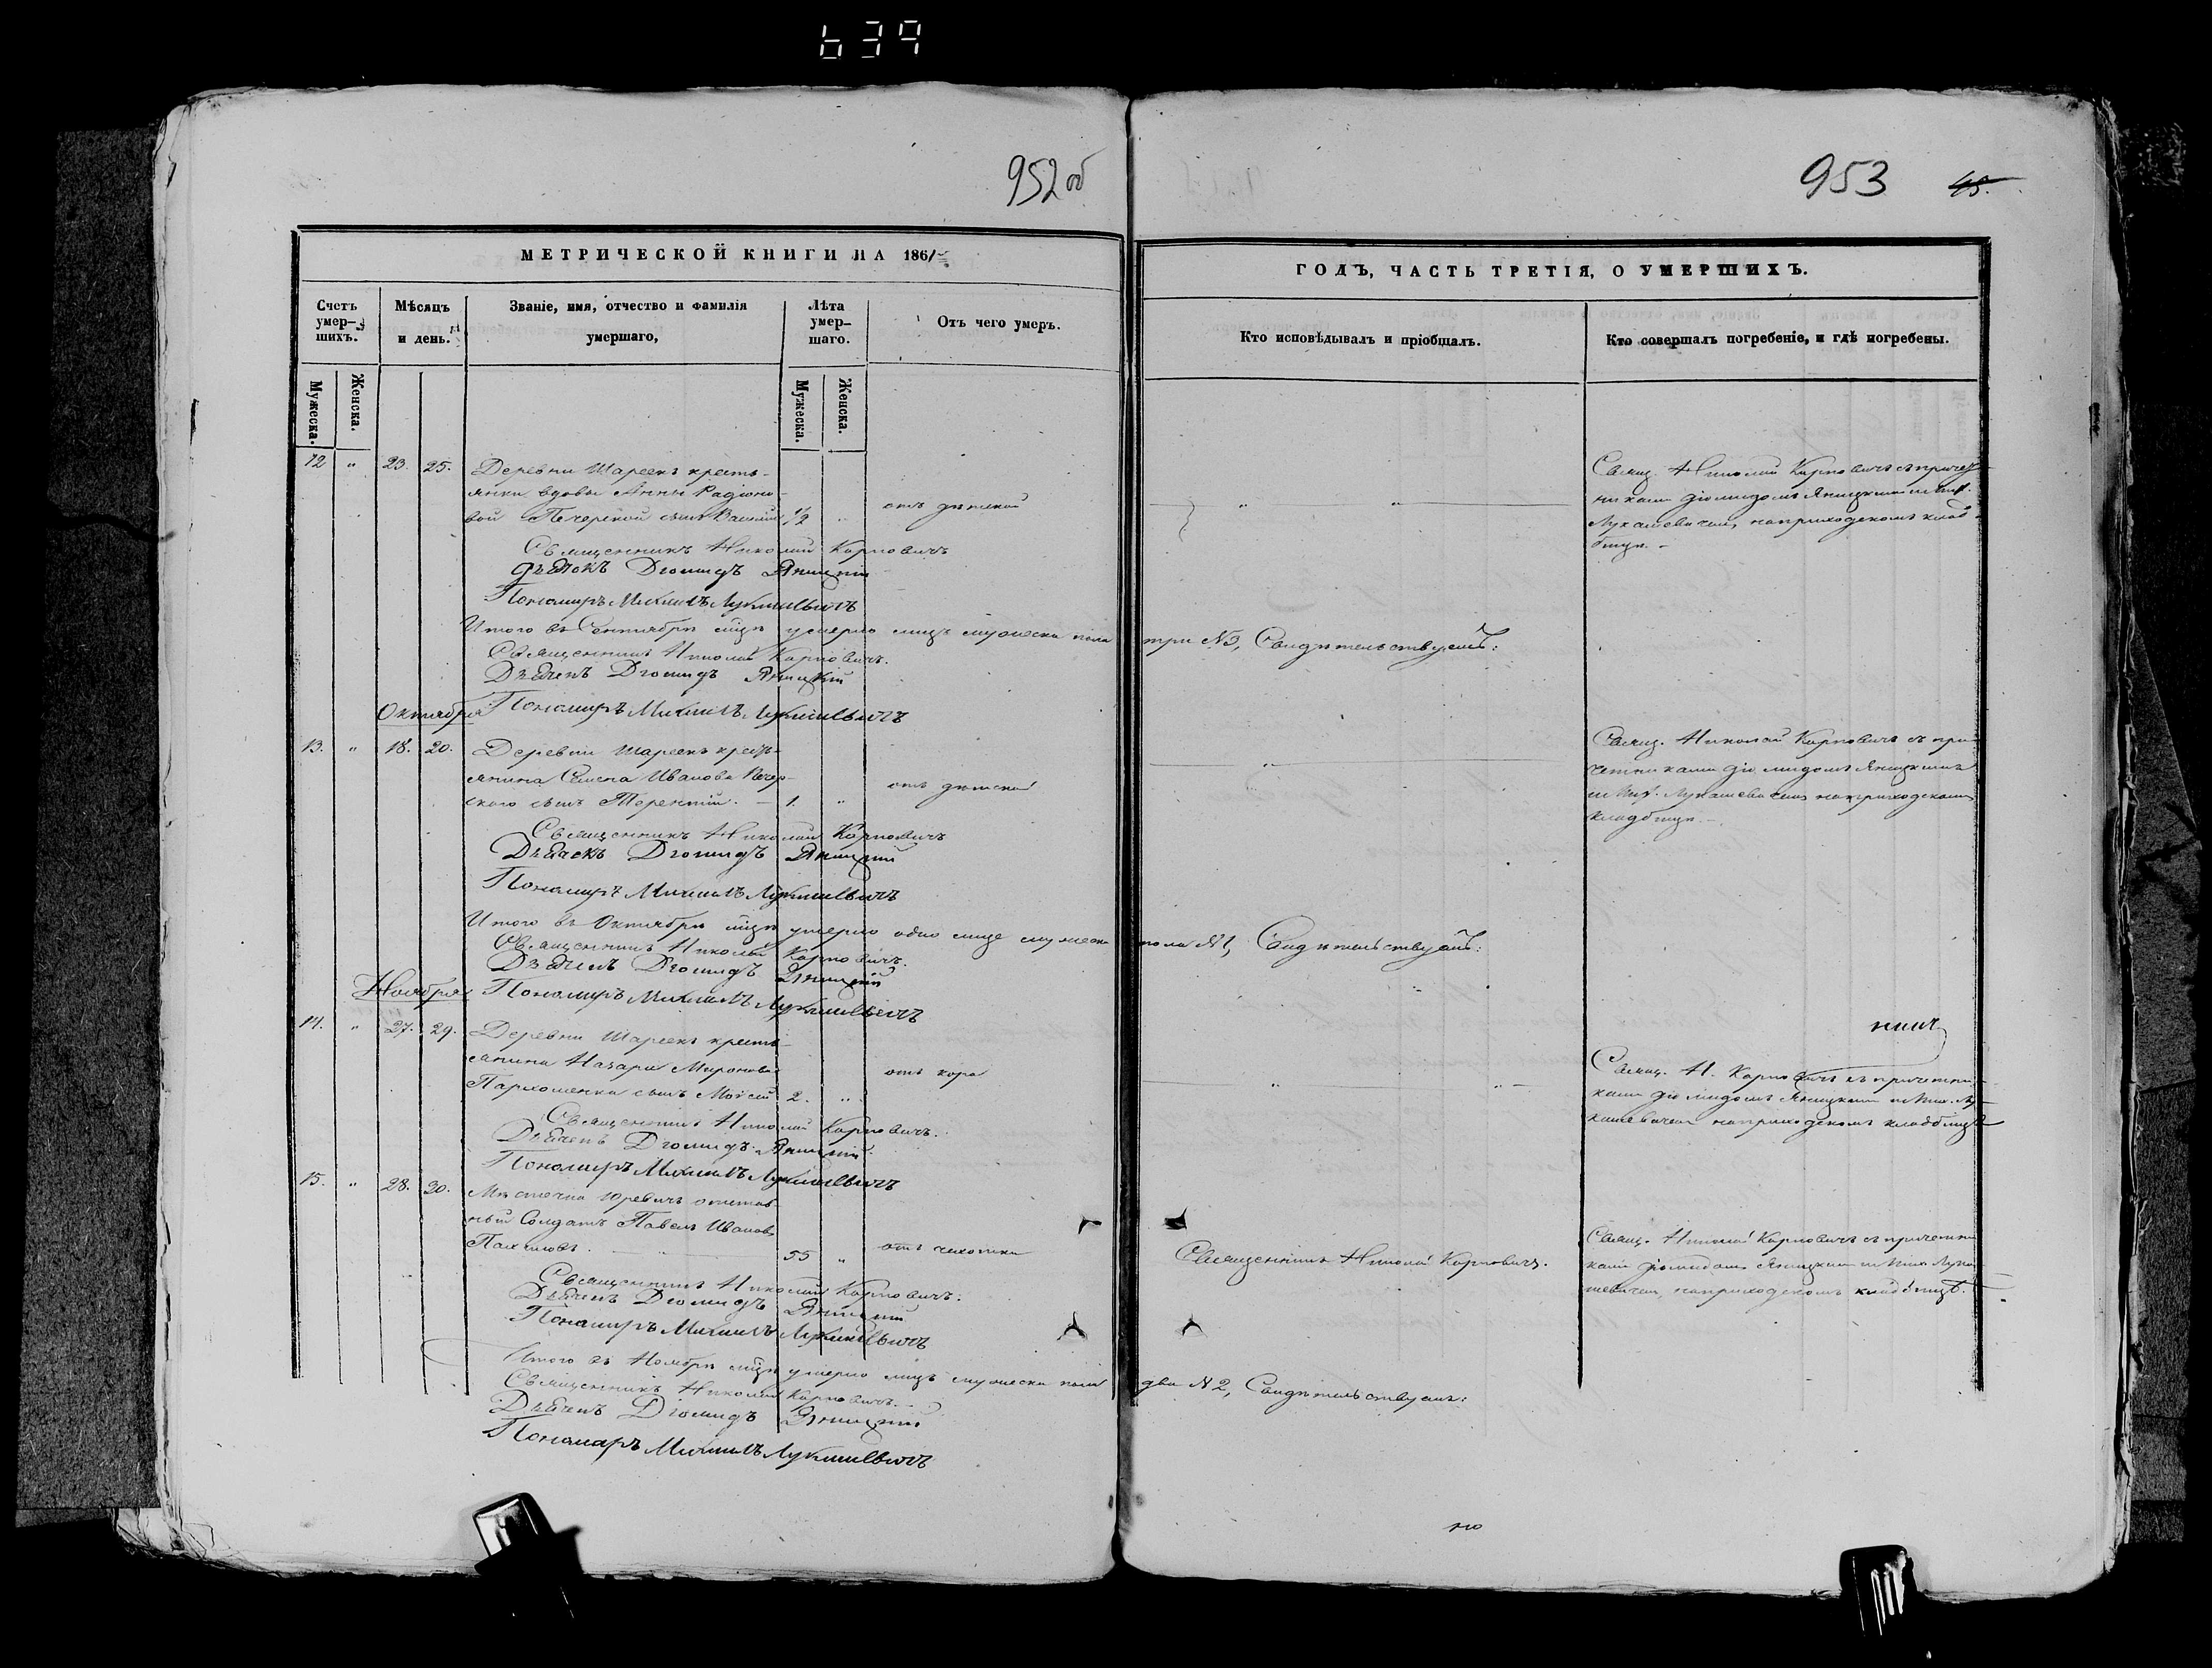 639
952 об
953
45.
МЕТРИЧЕСКОЙ КНИГИ НА 186
ГОДЪ, ЧАСТЬ ТРЕТІЯ, О УМЕРШИХЪ.
Счетъ умер-шихъ.
Мѣсяцъ и день.
Званіе, имя, отчество и фамилія умершаго,
Лѣта умер-шаго.
Отъ чего умеръ.
Кто исповѣдывалъ и пріобщалъ.
Кто совершалъ погребеніе, и гдѣ погребены.
Мужеска.
Женска.
Мужеска.
Женска.
12 " 23. 25. Деревни Шареекъ кресть-
янки вдовы Анны Радіоно-
вой Печерской сынъ Василій 1/2 " отъ дѣтской
Свящ. Николай Карповичъ съ причет-
никами Діомидомъ Яницкимъ и Мих.
Лукашевичемъ, на приходскомъ клад-
бищѣ. -
Священникъ Николай Карповичъ
Дьячокъ Діомидъ Яницкій
Пономарь Михаилъ Лукашевичъ
Итого въ Сентябрѣ мцѣ умерло лицъ мужеска пола три №3, Свидѣтельствуемъ:
Священникъ Николай Карповичъ.
Дьячекъ Діомидъ Яницкій
Пономарь Михаилъ Лукашевичъ
Октября
13. " 18. 20. Деревни Шареекъ кресть-
янина Семена Иванова Печер-
скаго сынъ Терентій. - 1. " отъ дѣтской
Свящ. Николай Карповичъ съ при-
четниками Діомидомъ Яницкимъ
и Мих. Лукашевичемъ на приходскомъ
кладбищѣ. -
Священникъ Николай Карповичъ
Дьячекъ Діомидъ Яницкій
Пономарь Михаилъ Лукашевичъ
Итого въ Октябрѣ мцѣ умерло одно лице мужеска пола №1, Свидѣтельствуемъ:
Священникъ Николай Карповичъ.
Дьячекъ Діомидъ Яницкій
Пономарь Михаилъ Лукашевичъ
Ноября
14. " 27. 29. Деревни Шареекъ кресть-
янина Назара Миронова
Пархоменка сынъ Моѵсей 2. " отъ кора
Свящ. Н. Карповичъ съ причетни-
ками Діомидомъ Яницкимъ и Мих. Лу-
кашевичемъ на приходскомъ кладбищѣ
Священникъ Николай Карповичъ.
Дьячекъ Діомидъ Яницкій
Пономарь Михаилъ Лукашевичъ
15. " 28. 30. Мѣстечка Юревичъ отстав-
ный Солдатъ Павелъ Ивановъ
55 " отъ чахотки
Священникъ Николай Карповичъ.
Свящ. Николай Карповичъ съ причетни-
ками Діомидомъ Яницкимъ и Мих. Лука-
шевичемъ, на приходскомъ кладбищѣ.
Священникъ Николай Карповичъ.
Дьячекъ Діомидъ Яницкій
Пономарь Михаилъ Лукашевичъ
Итого въ Ноябрѣ мцѣ умерло лицъ мужеска пола два №2, Свидѣтельствуемъ:
Священникъ Николай Карповичъ.
Дьячекъ Діомидъ Яницкій
Пономарь Михаилъ Лукашевичъ